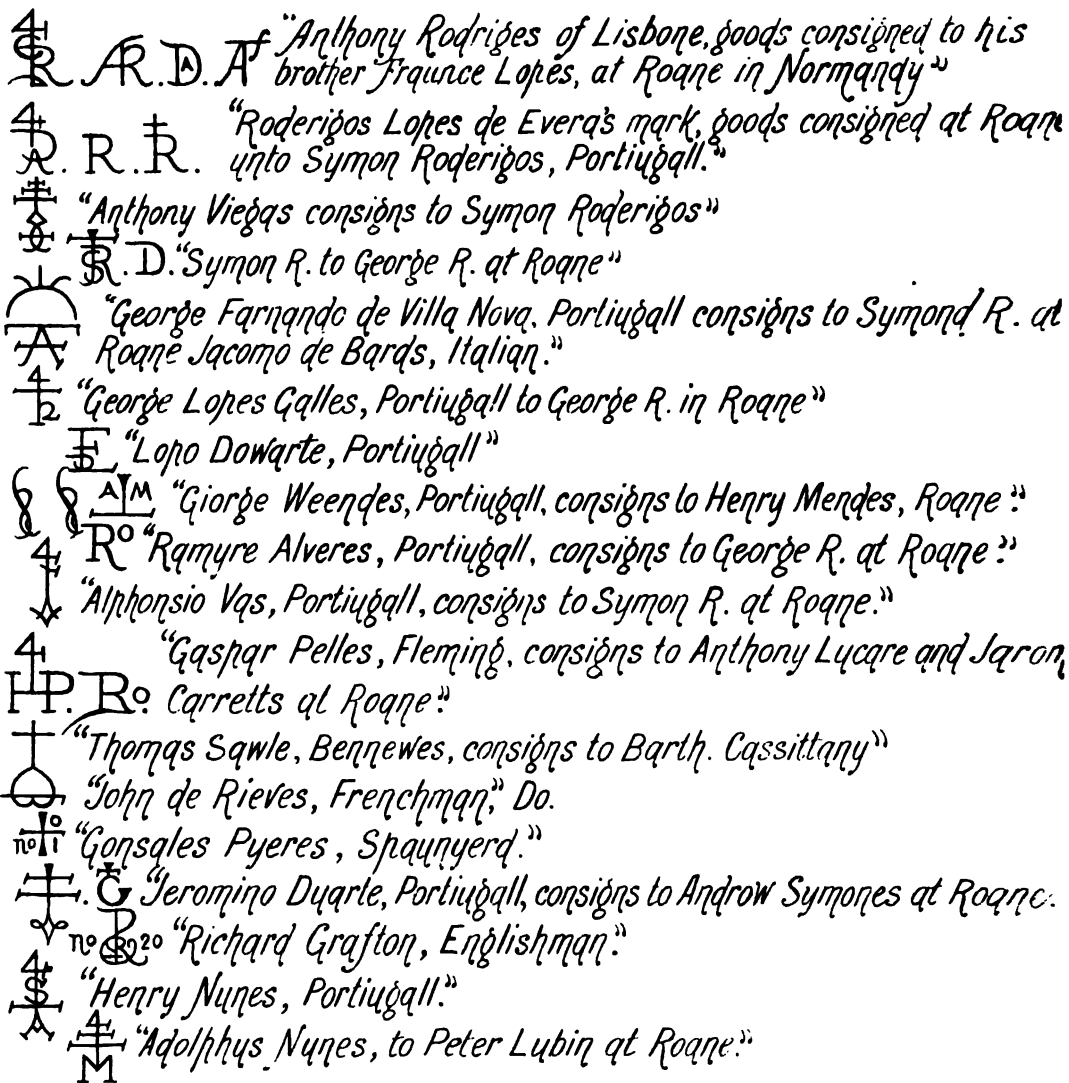 "Anthony Rodriges of Lisbone, goods consigned to his
R. AR. D. Af brother Fraunce Lopes, at Roane in Normandy"
"Roderigos Lopes de Evera's mark, goods consigned at Roane
R. R. unto Symon Roderigos, Portiugall."
"Anthony Viegas consigns to Symon Roderigos"
R. D. "Symon R. to George R. at Roane"
"George Farnando de Villa Nova. Portiugall consigns to Symond R. at
A Roane Jacomo de Bards, Italian."
"George Lopes Galles, Portiugall to George R. in Roane"
"Lopo Dowarte, Portiugall"
A M "Giorge Weendes, Portiugall, consigns to Henry Mendes, Roane."
Ro "Ramyre Alveres, Portiugall, consigns to George R. at Roane."
"Alphonsio Vas, Portiugall, consigns to Symon R. at Roane."
"Gaspar Pelles, Fleming, consigns to Anthony Lycare and Jaron,
HP. Ro. Carretts at Roane."
"Thomas Sawle, Bennewes, consigns to Barth. Cassittany"
"John de Rieves, Frenchman," Do.
no 1 "Gonsales Pyeres, Spaunyerd."
G "Jeromino Duarte, Portiugall, consigns to Androw Symones at Roane.
no 20 "Richard Grafton, Englishman."
"Henry Nunes, Portiugall."
M "Adolphus Nunes, to Peter Lubin at Roane."